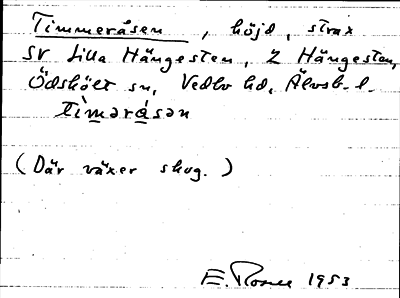 Timmeråsen, höjd, strax
SV Lilla Hängesten, 2 Hängesten,
Ödskölt sn, Vedbo hd, Älvsb. l.
tìmaråsan
(Där växer skog.)
E. Rosell 1953